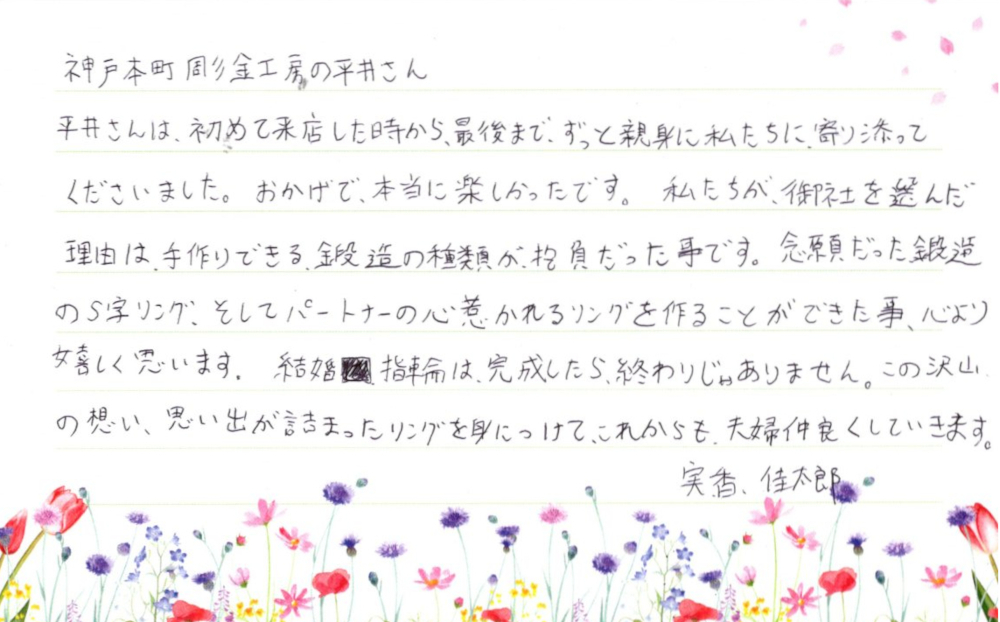 神戸本町彫金工房の平井さん
平井さんは、初めて来店した時から、最後まで、ずっと親身に私たちに、寄り添って
くださいました。おかげで、本当に楽しかったです。私たちが、御社を選んだ
理由は、手作りできる、鍛造の種類が、抱負だった事です。念願だった鍛造
のS字リング、そしてパートナーの心惹かれるリングを作ることができた事、心より
嬉しく思います。結婚指輪は、完成したら、終わりじゃありません。この沢山
の想い、思い出が詰まったリングを身につけて、これからも、夫婦仲良くしていきます。
実香、佳太郎